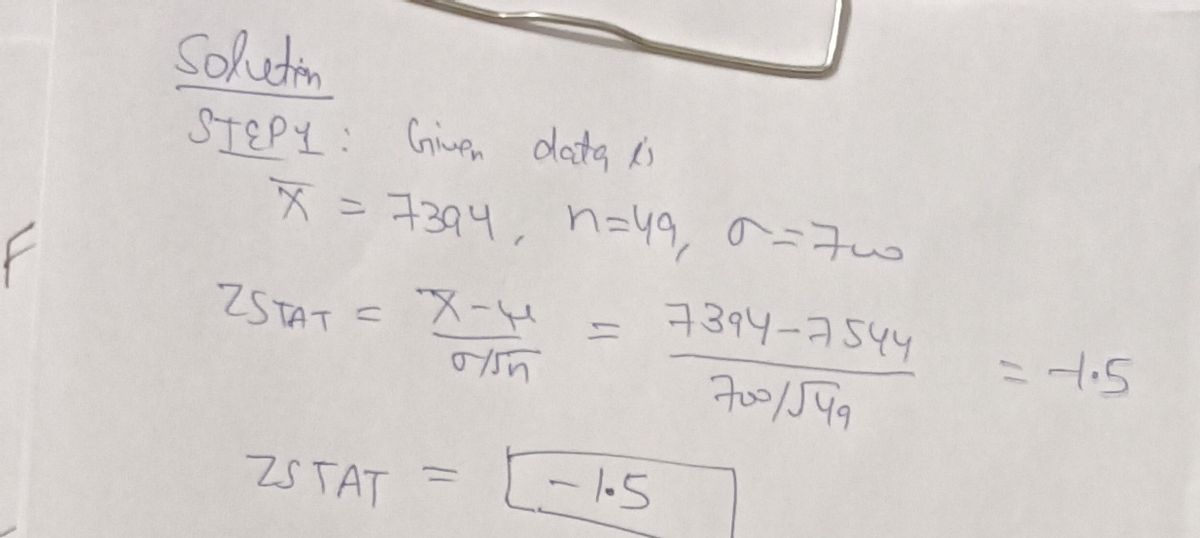 Solution
STEP1: Given data is
x̄ = 7394, n=49, σ=700
ZSTAT = x̄-μ/σ/√n = 7394-7544/700/√49 = -1.5
ZSTAT = -1.5
F